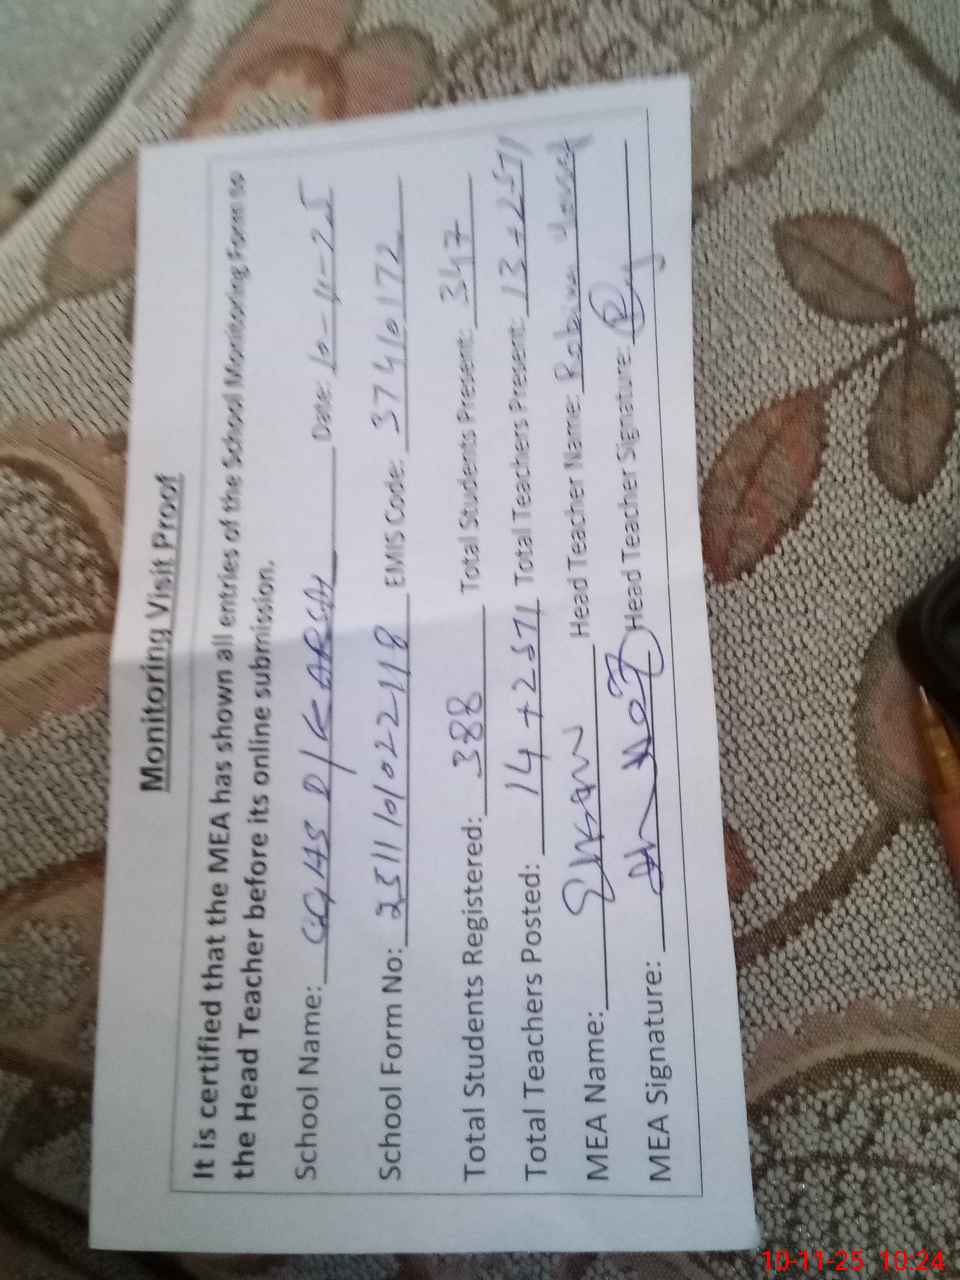 Monitoring Visit Proof
It is certified that the MEA has shown all entries of the School Monitoring Form to
the Head Teacher before its online submission.
School Name: GGHS D/KARCH Date: 10-11-25
School Form No: 2511101022118 EMIS Code: 37410172
Total Students Registered: 388 Total Students Present: 347
Total Teachers Posted: 14+2571 Total Teachers Present: 13+2571
MEA Name: Head Teacher Name: Robina
MEA Signature: Head Teacher Signature:
10-11-25 10:24